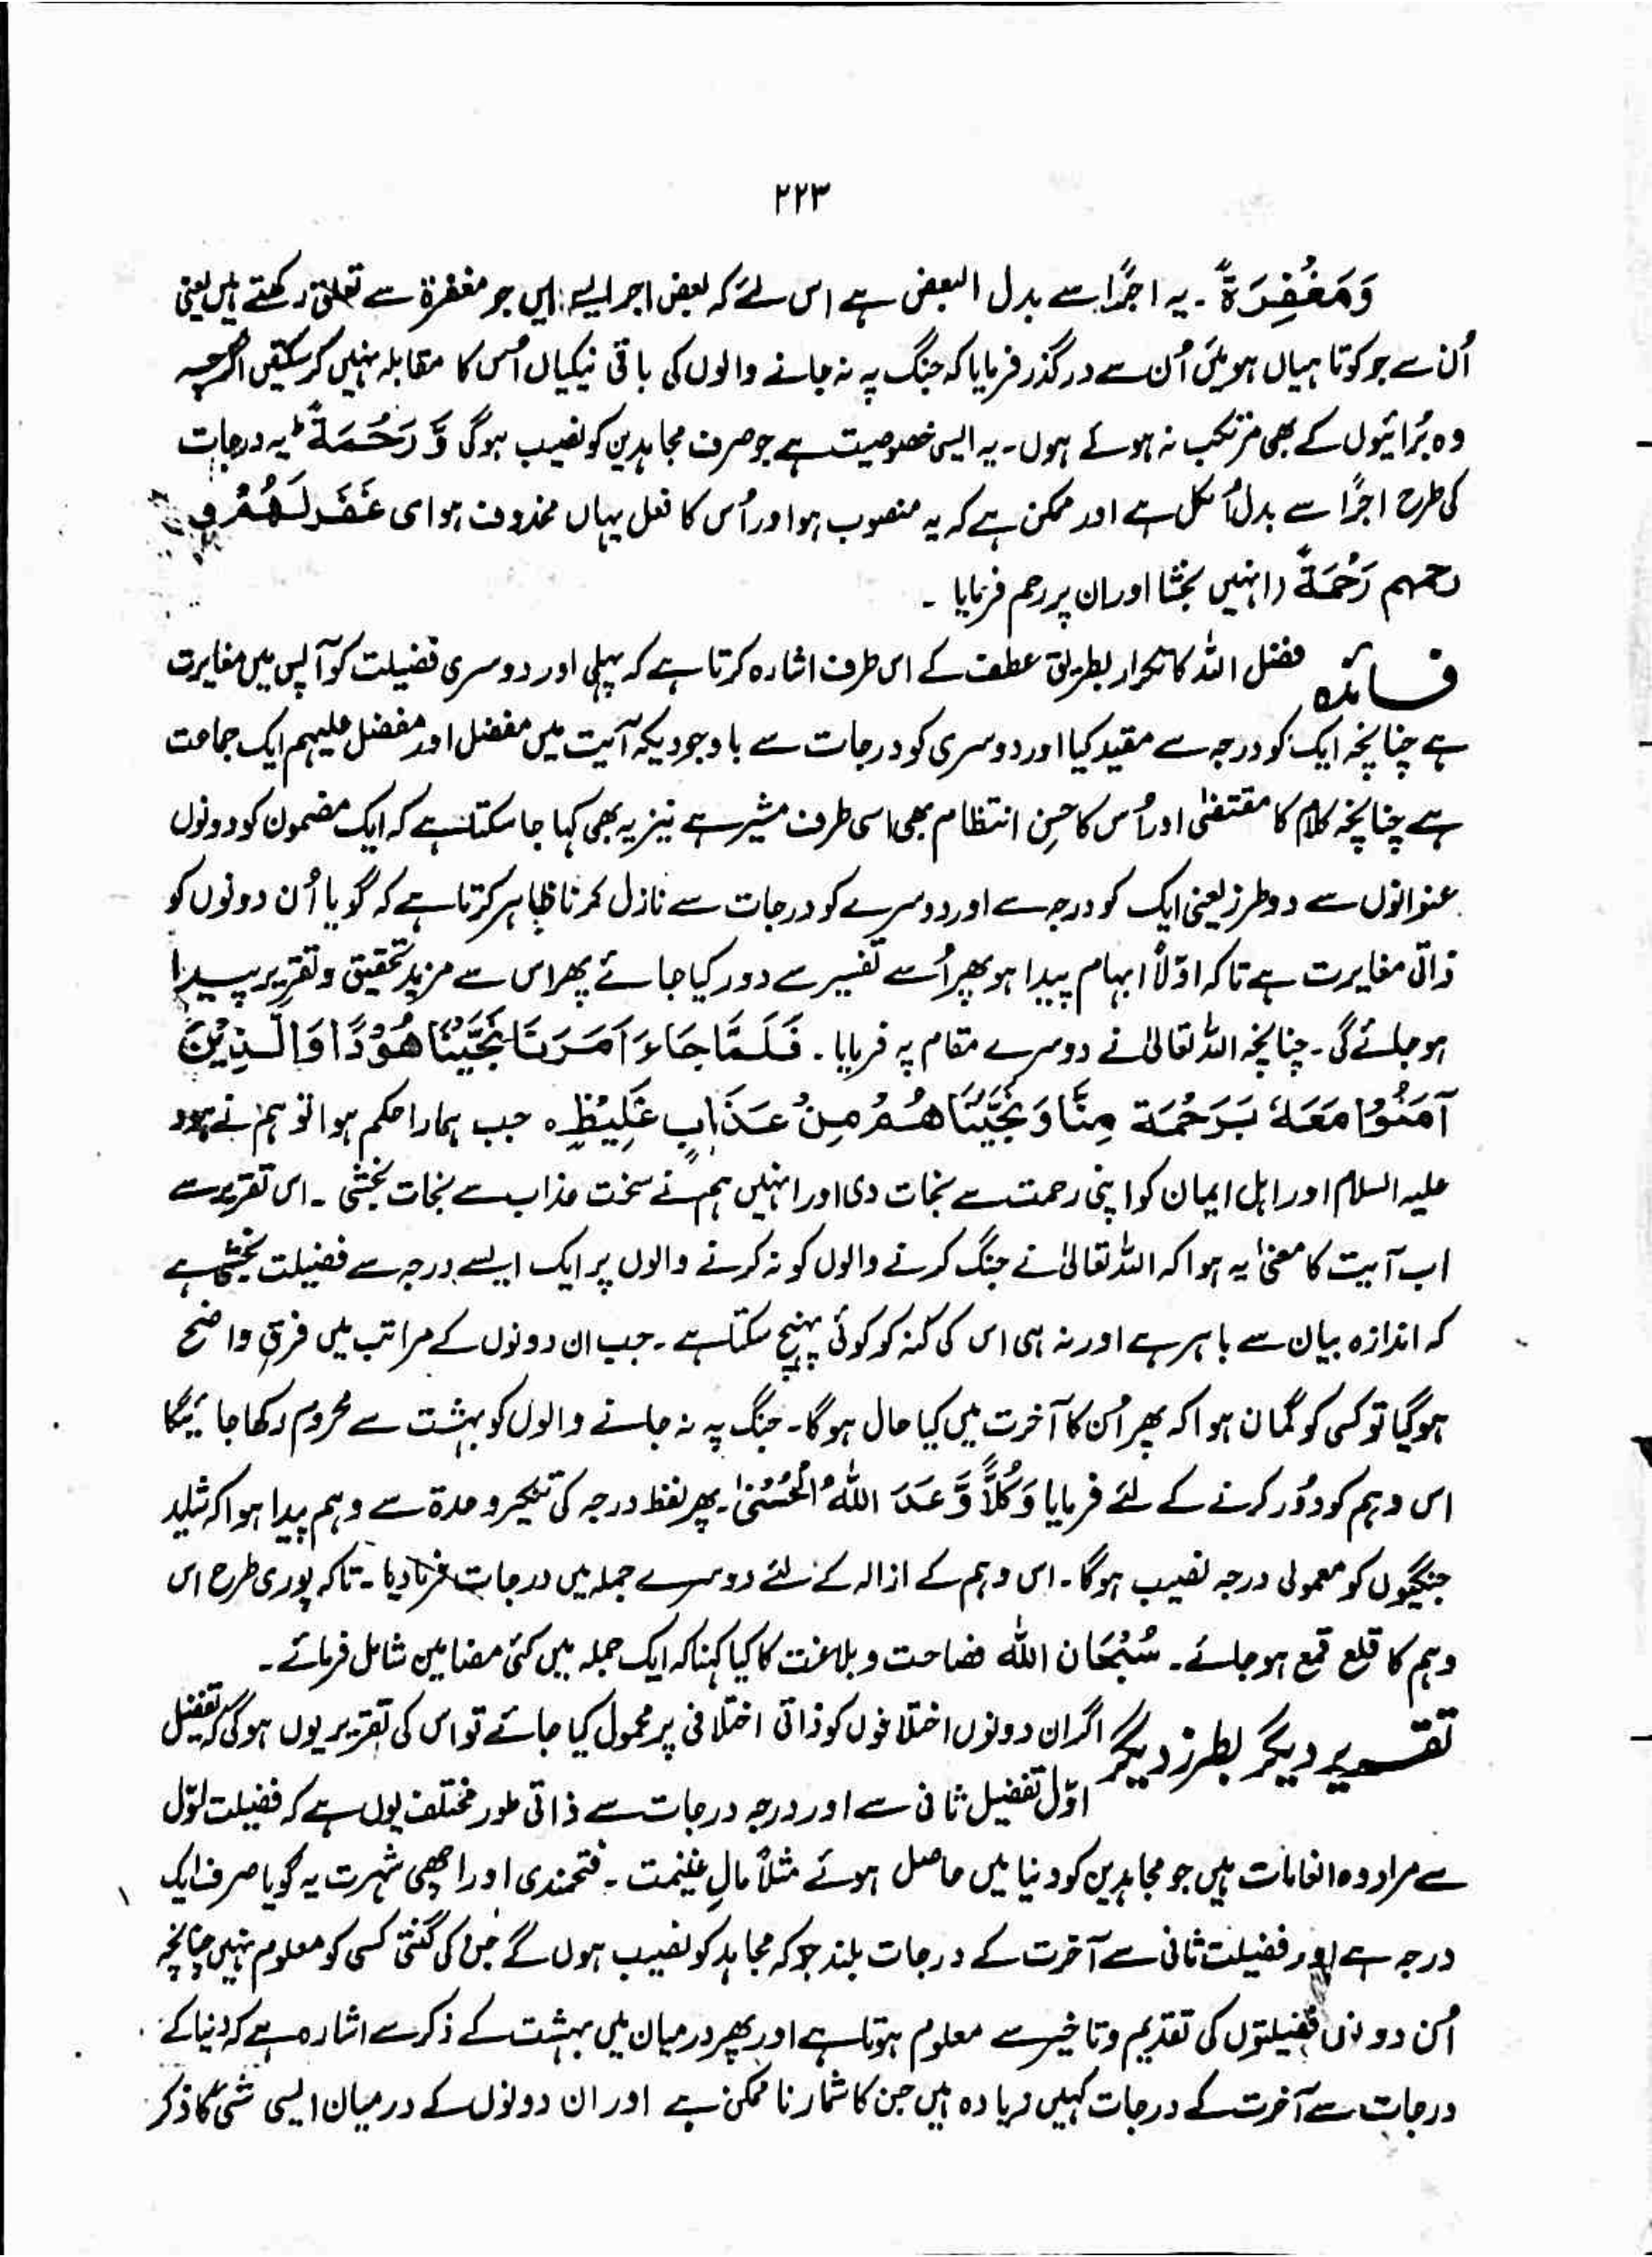 ۲۲۳
وَمَغْفِرَةً ۔ یہ اجرًا سے بدل البعض ہے اس لئے کہ بعض اجر ایسے ہیں جو مغفرۃ سے تعلق رکھتے ہیں یعنی
اُن سے جو کوتاہیاں ہوئیں اُن سے درگذر فرمایا کہ جنگ پہ نہ جانے والوں کی باقی نیکیاں اُس کا مقابلہ نہیں کر سکتیں اگرچہ
وہ بُرائیوں کے بھی مرتکب نہ ہوئے ہوں۔ یہ ایسی خصوصیت ہے جو صرف مجاہدین کو نصیب ہوگی وَّ رَحْمَةً ط یہ درجات
کی طرح اجرًا سے بدل اُلکل ہے اور ممکن ہے کہ یہ منصوب ہو اور اُس کا فعل یہاں محذوف ہو ای غَفَرَ لَهُمْ و
رحمہم رَحْمَةً (انہیں بخشا اور ان پر رحم فرمایا ۔
فائدہ فضل اللہ کا تکرار بطریق عطف کے اس طرف اشارہ کرتا ہے کہ پہلی اور دوسری فضیلت کو آپس میں مغایرت
ہے چنانچہ ایک کو درجہ سے مقید کیا اور دوسری کو درجات سے باوجودیکہ آیت میں مفضل اور مفضل علیہم ایک جماعت
ہے چنانچہ کلام کا مقتضیٰ اور اُس کا حسنِ انتظام بھی اسی طرف مشیر ہے نیز یہ بھی کہا جا سکتا ہے کہ ایک مضمون کو دونوں
عنوانوں سے دو طرز یعنی ایک کو درجہ سے اور دوسرے کو درجات سے نازل کرنا ظاہر کرتا ہے کہ گویا اُن دونوں کو
ذاتی مغایرت ہے تاکہ اوّلاً ابہام پیدا ہو پھر اُسے تفسیر سے دور کیا جائے پھر اس سے مزید تحقیق و تقریر پیدا
ہو جائے گی ۔ چنانچہ اللہ تعالیٰ نے دوسرے مقام پہ فرمایا ۔ فَلَمَّا جَاءَ اَمْرُنَا نَجَّيْنَا هُوْدًا وَّالَّذِيْنَ
آمَنُوْا مَعَهٗ بِرَحْمَة مِنَّا وَ نَجَّيْنَاهُمْ مِنْ عَذَابٍ غَلِيْظٍ ہ جب ہمارا حکم ہوا تو ہم نے ہود
علیہ السلام اور اہل ایمان کو اپنی رحمت سے نجات دی اور انہیں ہم نے سخت عذاب سے نجات بخشی ۔ اس تقریر سے
اب آیت کا معنیٰ یہ ہوا کہ اللہ تعالیٰ نے جنگ کرنے والوں کو نہ کرنے والوں پر ایک ایسے درجہ سے فضیلت بخشی ہے
کہ اندازہ بیان سے باہر ہے اور نہ ہی اس کی کنہ کو کوئی پہنچ سکتا ہے ۔ جب ان دونوں کے مراتب میں فرق واضح
ہوگیا تو کسی کو گمان ہوا کہ پھر اُن کا آخرت میں کیا حال ہوگا ۔ جنگ پہ نہ جانے والوں کو بہشت سے محروم رکھا جائیگا
اس وہم کو دُور کرنے کے لئے فرمایا وَكُلًّا وَّعَدَ اللهُ الْحُسْنٰى ۔ پھر لفظ درجہ کی تنکیر و وحدۃ سے وہم پیدا ہوا کہ شاید
جنگیوں کو معمولی درجہ نصیب ہوگا ۔ اس وہم کے ازالہ کے لئے دوسرے جملہ میں درجات فرما دیا ۔ تاکہ پوری طرح اس
وہم کا قلع قمع ہو جائے ۔ سُبْحَان اللہ فصاحت و بلاغت کا کیا کہنا کہ ایک جملہ میں کئی مضامین شامل فرمائے ۔
تقریر دیگر بطرز دیگر اگر ان دونوں اختلافوں کو ذاتی اختلافی پر محمول کیا جائے تو اس کی تقریر یوں ہوگی کہ تفضیل
اوّل تفضیل ثانی سے اور درجہ درجات سے ذاتی طور مختلف یوں ہے کہ فضیلت اوّل
سے مراد وہ انعامات ہیں جو مجاہدین کو دنیا میں حاصل ہوئے مثلاً مالِ غنیمت ۔ فتحمندی اور اچھی شہرت یہ گویا صرف ایک
درجہ ہے اور فضیلت ثانی سے آخرت کے درجات بلند جو کہ مجاہد کو نصیب ہوں گے جن کی گنتی کسی کو معلوم نہیں چنانچہ
اُن دونوں فضیلتوں کی تقدیم و تاخیر سے معلوم ہوتا ہے اور پھر درمیان میں بہشت کے ذکر سے اشارہ ہے کہ دنیا کے
درجات سے آخرت کے درجات کہیں زیادہ ہیں جن کا شمار ناممکن ہے اور ان دونوں کے درمیان ایسی شئ کا ذکر